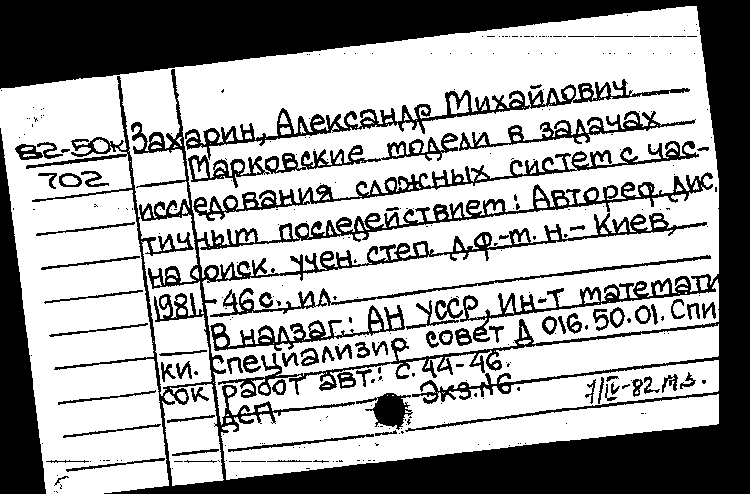 Захарин, Александр Михайлович.
82-50к Марковские модели в задачах
702
исследования сложных систем с час-
тичным последействием: Автореф. дис.
на соиск. учен. степ. д.ф.-м.н.- Киев,
1981.- 46 с., ил.
В надзаг.: АН УССР, Ин-т математи
ки. Специализир совет Д 016.50.01. Спи
сок работ авт.: с. 44-46.
ДСП. Экз.№6.
1/IV-82.